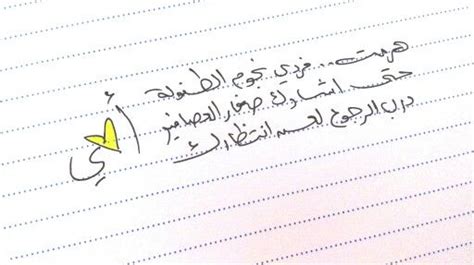 هرمت.. فردي نجوم الطفولة
حتى اشارك صغار العصافير
درب الرجوع لعش انتظارك
أمي